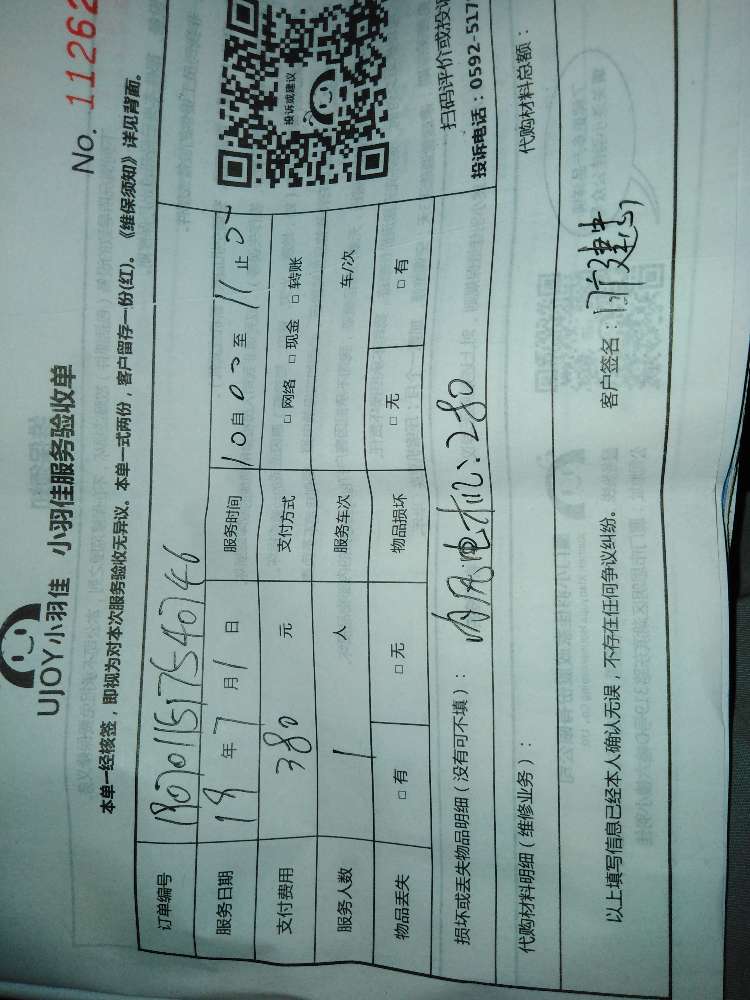 UJOY小羽佳 小羽佳服务验收单
No. 11262
本单一经核签，即视为对本次服务验收无异议。本单一式两份，客户留存一份(红)。《维保须知》详见背面。
订单编号
服务日期 18年7月1日 服务时间 10自00至11止0
支付费用 380元 支付方式 □网络 □现金 □转账
服务人数 1人 服务车次 车/次
物品丢失 □有 □无 物品损坏 □无 □有
投诉或建议
扫码评价或投
投诉电话：0592-517
损坏或丢失物品明细（没有可不填）： 内风电机：280
代购材料明细（维修业务）： 代购材料总额：
以上填写信息已经本人确认无误，不存在任何争议纠纷。 客户签名： 建忠